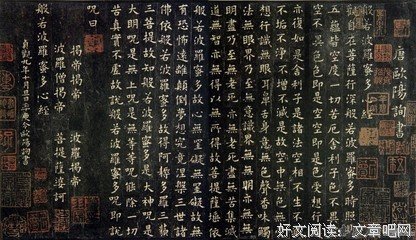 唐歐陽詢書
般若波羅蜜多心經
觀自在菩薩行深般若波羅蜜多時照見
五蘊皆空度一切苦厄舍利子色不異
空空不異色色即是空空即是色受想行識
亦復如是舍利子是諸法空相不生不滅
不垢不淨不增不減是故空中無色無受
想行識無眼耳鼻舌身意無色聲香味觸
法無眼界乃至無意識界無無明亦無無
明盡乃至無老死亦無老死盡無苦集滅
道無智亦無得以無所得故菩提薩埵依
般若波羅蜜多故心無罣礙無罣礙故無
有恐怖遠離顛倒夢想究竟涅槃三世諸
佛依般若波羅蜜多故得阿耨多羅三藐
三菩提故知般若波羅蜜多是大神呪是
大明呪是無上呪是無等等呪能除一切
苦真實不虛故說般若波羅蜜多呪即說
呪曰
揭帝揭帝 波羅揭帝
波羅僧揭帝 菩提薩婆訶
般若波羅蜜多心經
貞觀九年十月旦日率更令歐陽詢書
好文阅读：文章吧网